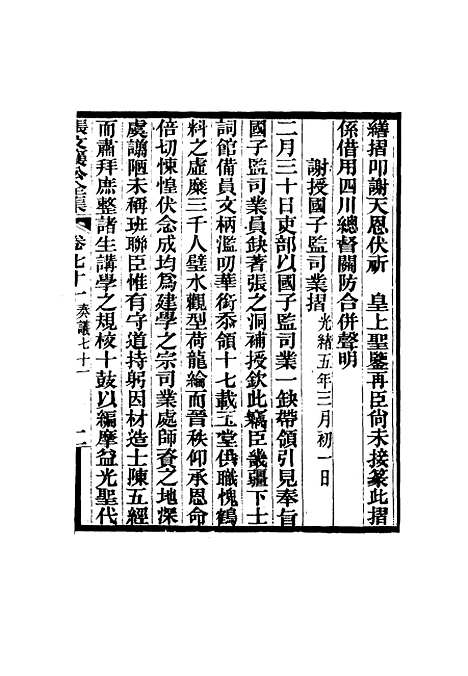 繕摺叩謝天恩伏祈　皇上聖鑒再臣尚未接篆此摺
係借用四川總督關防合併聲明
謝授國子監司業摺　光緒五年三月初一日
二月三十日吏部以國子監司業一缺帶領引見奉旨
國子監司業員缺著張之洞補授欽此竊臣畿疆下士
詞館備員文柄濫叨華銜忝領十七載玉堂供職愧鶴
料之虛糜三千人璧水觀型荷龍綸而晉秩仰承恩命
倍切悚惶伏念成均爲建學之宗司業處師資之地深
虞譾陋未稱班聯臣惟有守道持躬因材造士陳五經
而肅拜庶整諸生講學之規稜十鼓以編摩益光聖代
張文襄公全集　卷七十一　奏議七十一